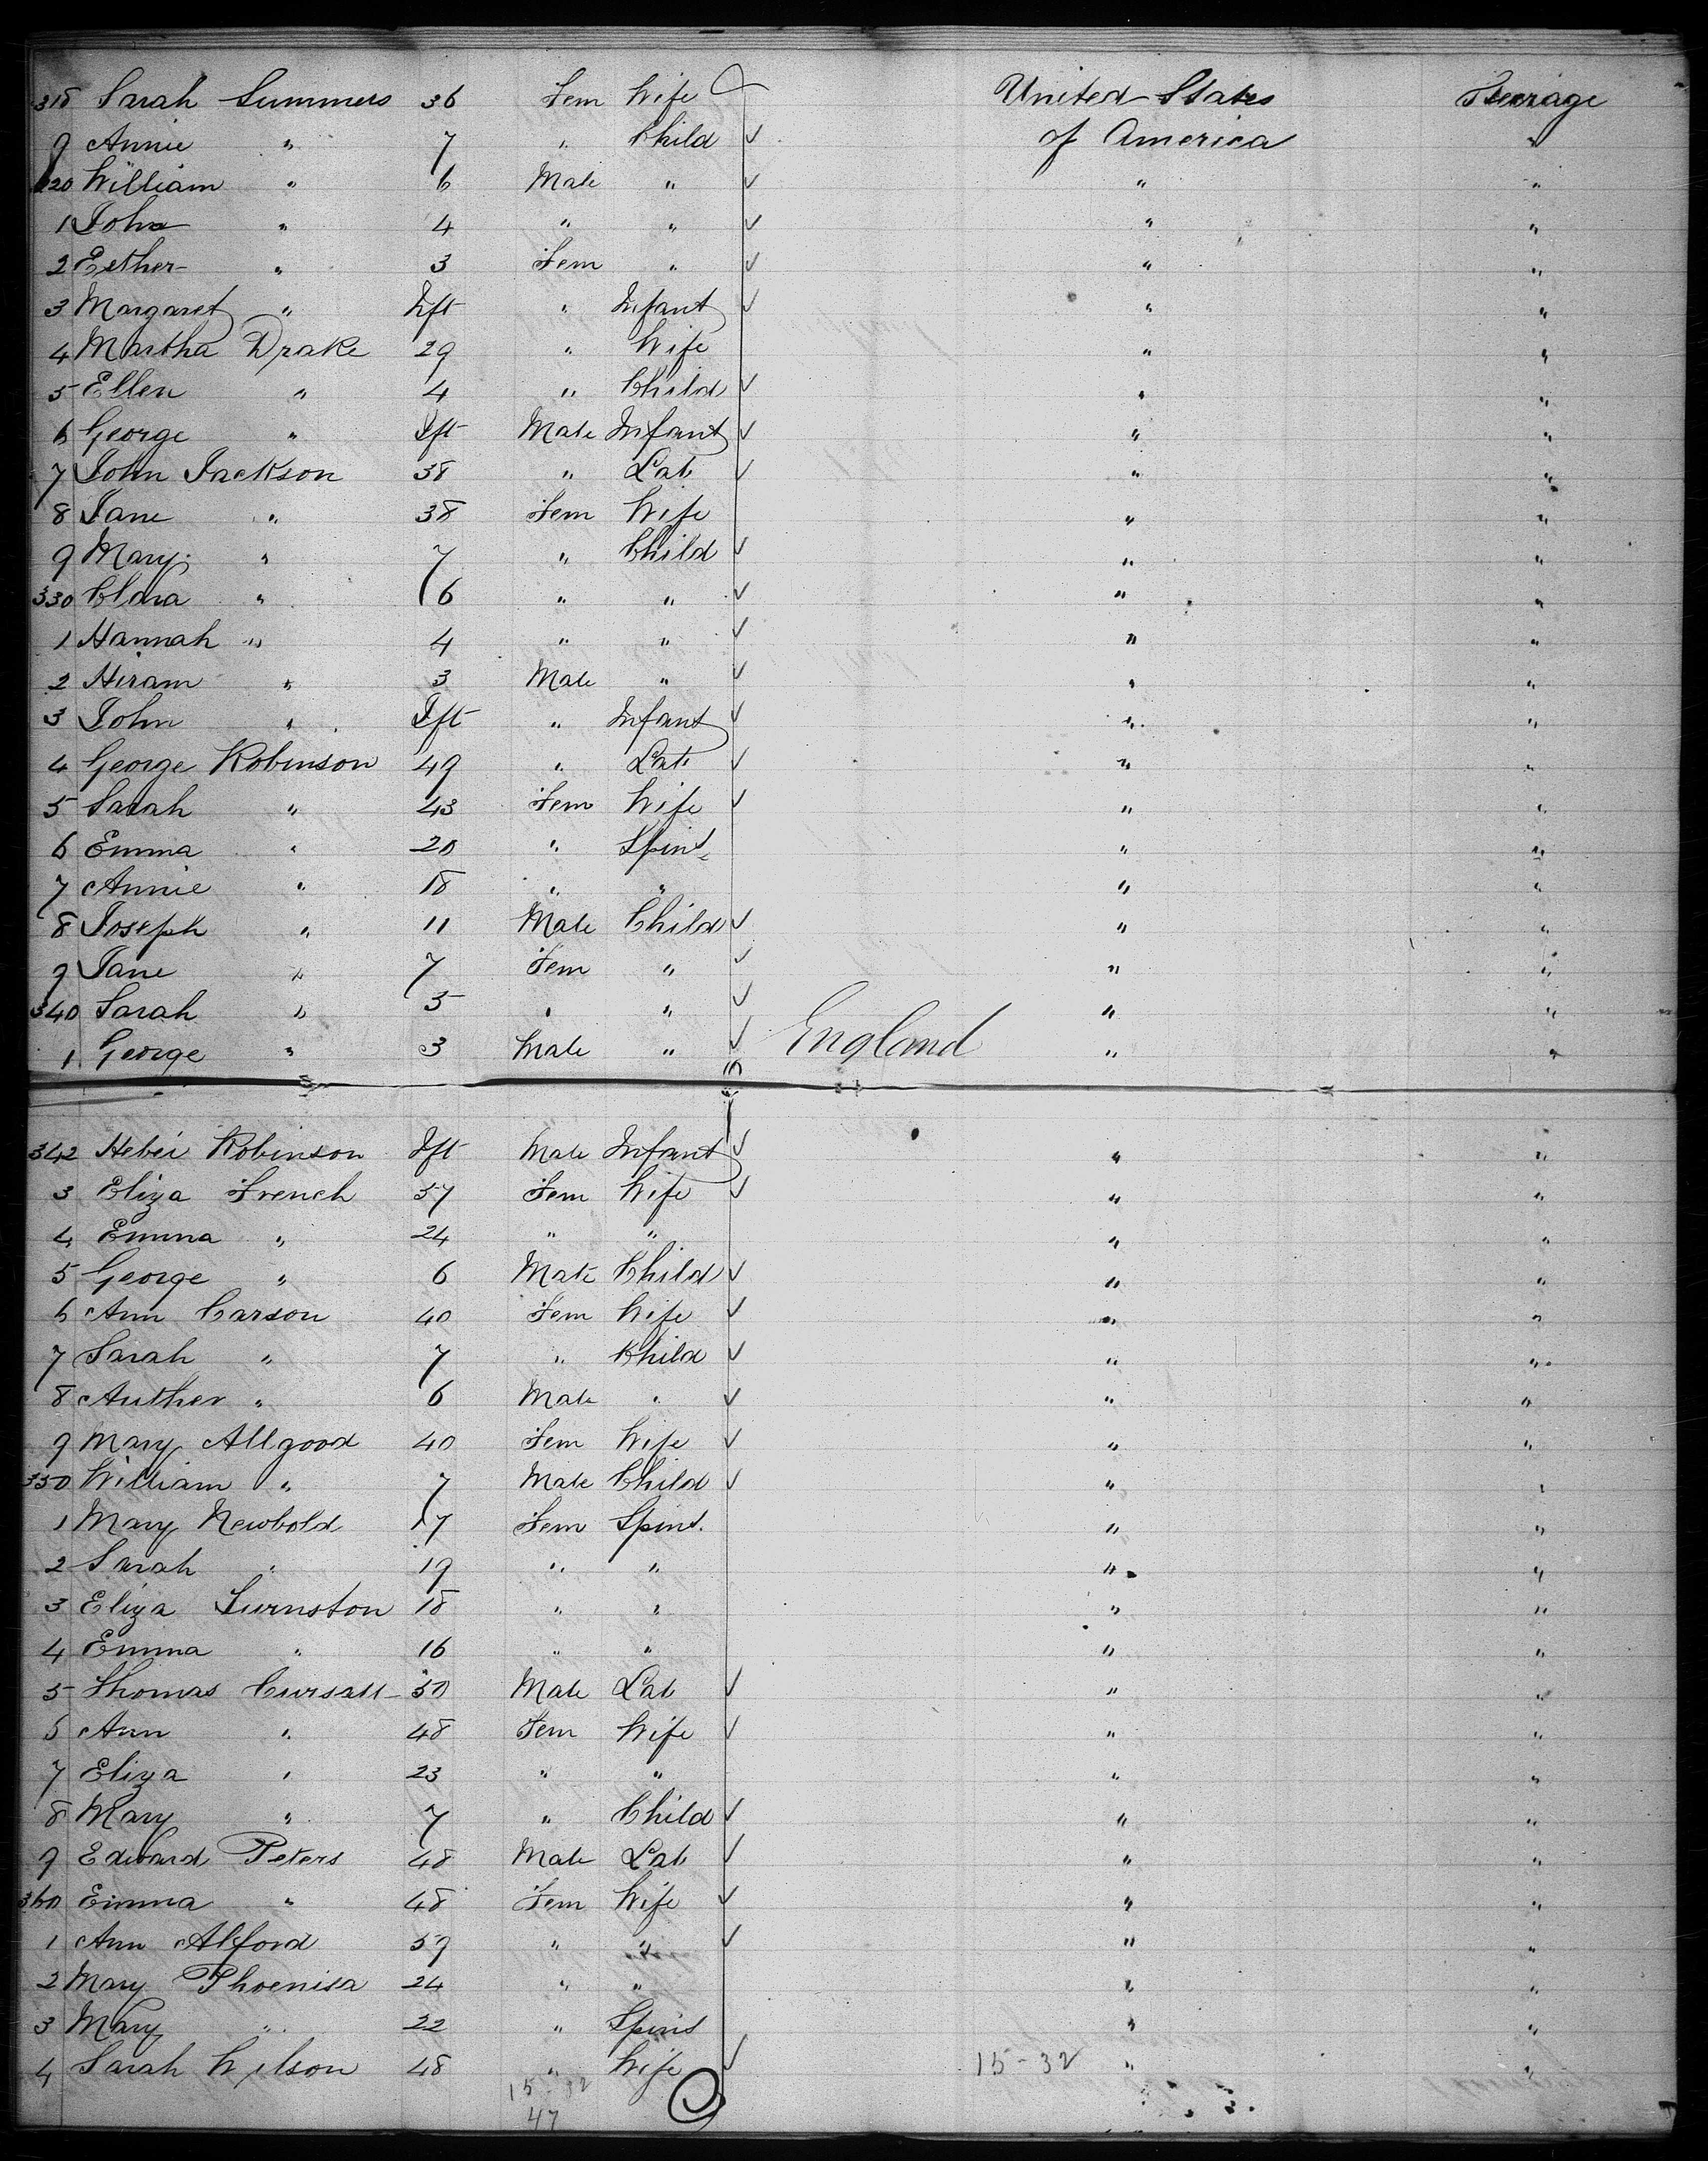 318 Sarah Summers 36 Fem Wife United States Steerage
9 Annie " 7 " Child ✓ of America "
320 William " 6 Male " ✓ " "
1 John " 4 " " ✓ " "
2 Esther " 3 Fem " ✓ " "
3 Margaret " Ift " Infant ✓ " "
4 Martha Drake 29 " Wife " "
5 Ellen " 4 " Child ✓ " "
6 George " Ift Male Infant ✓ " "
7 John Jackson 38 " Lab ✓ " "
8 Jane " 38 Fem Wife " "
9 Mary " 7 " Child ✓ " "
330 Clara " 6 " " ✓ " "
1 Hannah " 4 " " ✓ " "
2 Hiram " 3 Male " ✓ " "
3 John " Ift " Infant ✓ " "
4 George Robinson 49 " Lab ✓ " "
5 Sarah " 43 Fem Wife ✓ " "
6 Emma " 20 " Spins " "
7 Annie " 18 " " " "
8 Joseph " 11 Male Child ✓ " "
9 Jane " 7 Fem " ✓ " "
340 Sarah " 5 " " ✓ " "
1 George " 3 Male " ✓ England " "
342 Robinson Ift Male Infant ✓ " "
3 Eliza French 57 Fem Wife ✓ " "
4 Emma " 24 " " " "
5 George " 6 Male Child ✓ " "
6 Ann Carson 40 Fem Wife ✓ " "
7 Sarah " 7 " Child ✓ " "
8 Auther " 6 Male " ✓ " "
9 Mary Allgood 40 Fem Wife ✓ " "
350 William " 7 Male Child ✓ " "
1 Mary Newbold 17 Fem Spins. " "
2 Sarah " 19 " " " "
3 Eliza 18 " " " "
4 Emma " 16 " " " "
5 Thomas 50 Male Lab ✓ " "
6 Ann " 48 Fem Wife ✓ " "
7 Eliza " 23 " " " "
8 Mary " 7 " Child ✓ " "
9 Edward Peters 48 Male Lab ✓ " "
360 Emma " 48 Fem Wife ✓ " "
1 Ann Alford 59 " " ✓ " "
2 Mary Phoenisa 24 " " " "
3 Mary " 22 " Spins " "
4 Sarah Wilson 48 " Wife ✓ 15-32 " "
15-32
47